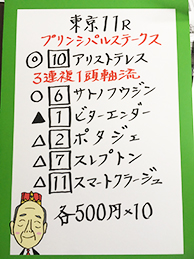 東京11R
プリンシパルステークス
◎ 10 アリストテレス
3連複1頭軸流
○ 6 サトノフウジン
▲ 1 ビターエンダー
△ 2 ポタジェ
△ 7 スレプトン
△ 11 スマートクラージュ
各500円×10